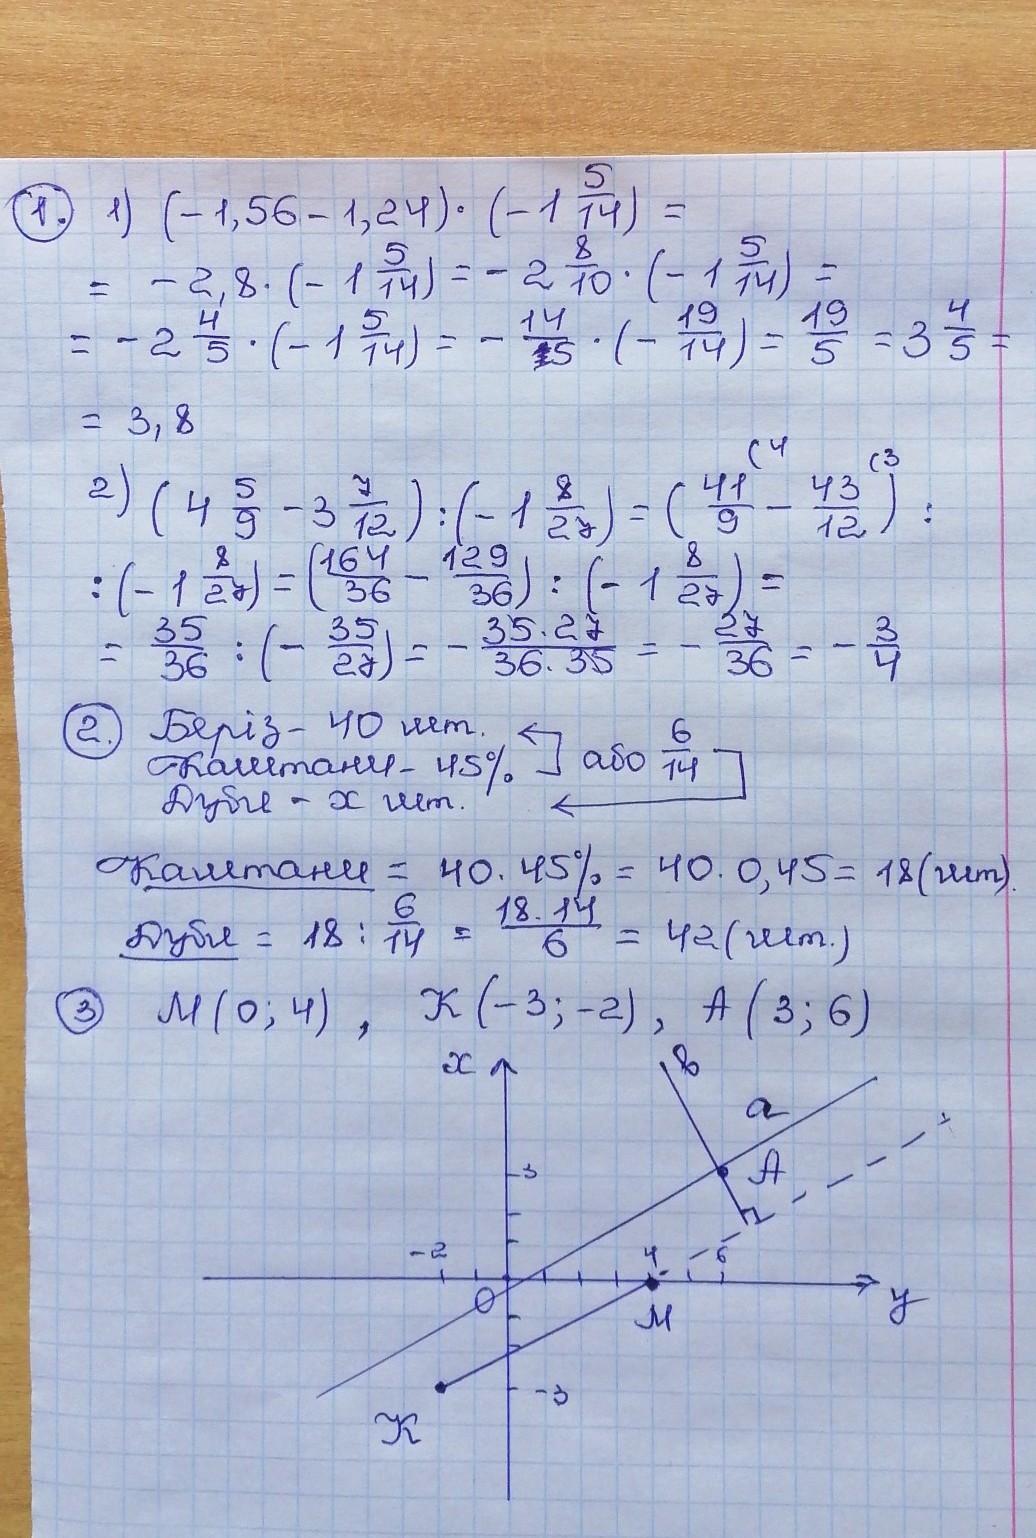 1. 1) (-1,56-1,24)·(-1 5/14) =
= -2,8·(-1 5/14) = -2 8/10·(-1 5/14) =
= -2 4/5·(-1 5/14) = -14/5·(-19/14) = 19/5 = 3 4/5 =
= 3,8
2) (4 5/9 - 3 7/12):(-1 8/27) = (41/9 (4 - 43/12 (3):
:(-1 8/27) = (164/36 - 129/36):(-1 8/27) =
= 35/36:(-35/27) = -35·27/36·35 = -27/36 = -3/4
2. Беріз - 40 шт.
Каштани - 45% або 6/14
Дуби - x шт.
Каштани = 40·45% = 40·0,45 = 18(шт).
Дуби = 18:6/14 = 18·14/6 = 42(шт.)
3 М(0;4), К(-3;-2), А(3;6)
x в
a
3 А
-2 4 6
О М у
-3
К